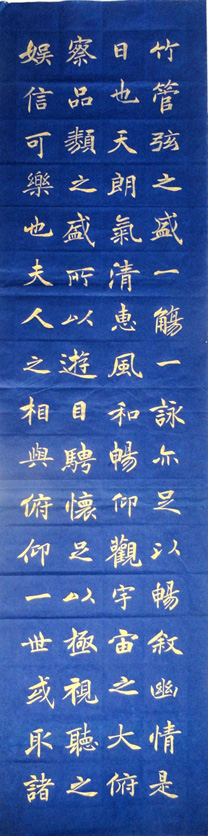 竹管弦之盛一觴一詠亦足以暢敘幽情是
日也天朗氣清惠風和暢仰觀宇宙之大俯
察品類之盛所以遊目騁懷足以極視聽之
娛信可樂也夫人之相與俯仰一世或取諸